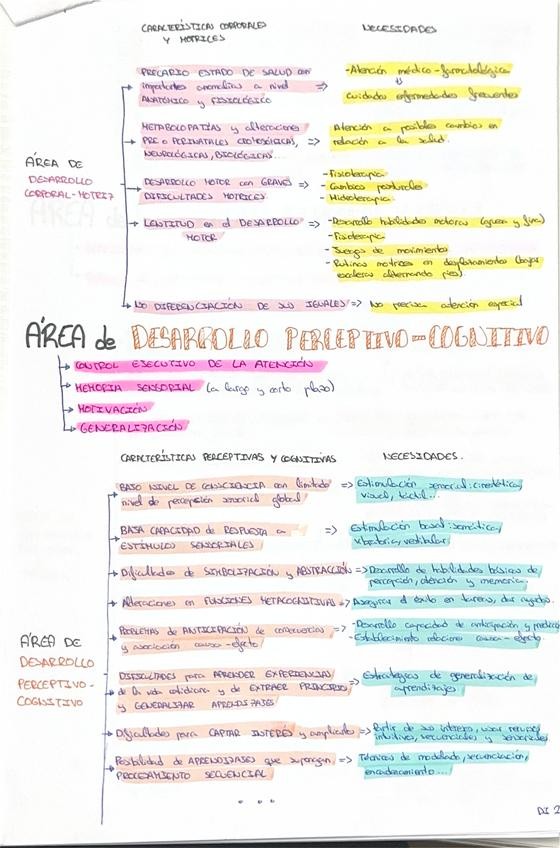 CARACTERÍSTICAS CORPORALES
Y MOTRICES
NECESIDADES
PRECARIO ESTADO DE SALUD con
importantes anomalías a nivel =>
ANATÓMICO y FISIOLÓGICO
-Atención médico-farmatológica
Cuidados enfermedades frecuentes
METABOLOPATÍAS y alteraciones
PRE o PERINATALES CROMOSÓMICAS, =>
NEUROLÓGICAS, BIOLÓGICAS...
Atención a posibles cambios en
relación a la salud.
ÁREA DE
DESARROLLO
CORPORAL-MOTRIZ
DESARROLLO MOTOR con GRAVES =>
DIFICULTADES MOTRICES.
-Fisioterapia
-Cambios posturales
-Hidroterapia.
LENTITUD en el DESARROLLO =>
MOTOR
-Desarrollo habilidades motoras (gruesa y fina)
-Fisioterapia
-Juegos de movimiento
-Rutinas motrices en desplazamientos (bajar
escaleras alternando pies).
NO DIFERENCIACIÓN DE SUS IGUALES => No precisa atención especial
ÁREA de DESARROLLO PERCEPTIVO-COGNITIVO
CONTROL EJECUTIVO DE LA ATENCIÓN
MEMORIA SENSORIAL (a largo y corto plazo)
MOTIVACIÓN
GENERALIZACIÓN
CARACTERÍSTICAS PERCEPTIVAS Y COGNITIVAS
NECESIDADES.
BAJO NIVEL DE CONSCIENCIA con limitado =>
nivel de percepción sensorial global
Estimulación sensorial: cinestésica,
visual, táctil...
BAJA CAPACIDAD de RESPUESTA a =>
ESTÍMULOS SENSORIALES
Estimulación basal: somática,
vibratoria, vestibular.
Dificultades de SIMBOLIZACIÓN y ABSTRACCIÓN => Desarrollo de habilidades básicas de
percepción, atención y memoria.
Alteraciones en FUNCIONES METACOGNITIVAS => Asegurar el éxito en tareas, dar
ÁREA DE
DESARROLLO
PERCEPTIVO-
COGNITIVO
PROBLEMAS de ANTICIPACIÓN de consecuencias =>
y asociación causa-efecto.
-Desarrollo capacidad de anticipación y
-Establecimiento relaciones causa-efecto.
DIFICULTADES para APRENDER EXPERIENCIAS
de la vida cotidiana y de EXTRAER PRINCIPIOS =>
y GENERALIZAR APRENDIZAJES
Estrategias de generalización de
aprendizajes.
Dificultades para CAPTAR INTERÉS y ampliarlo => Partir de su interés, usar
intuitivos, secuenciales y sensoriales.
Posibilidad de APRENDIZAJES que supongan =>
PROCESAMIENTO SECUENCIAL
Técnicas de modelado, secuenciación,
encadenamiento...
...
DI 2